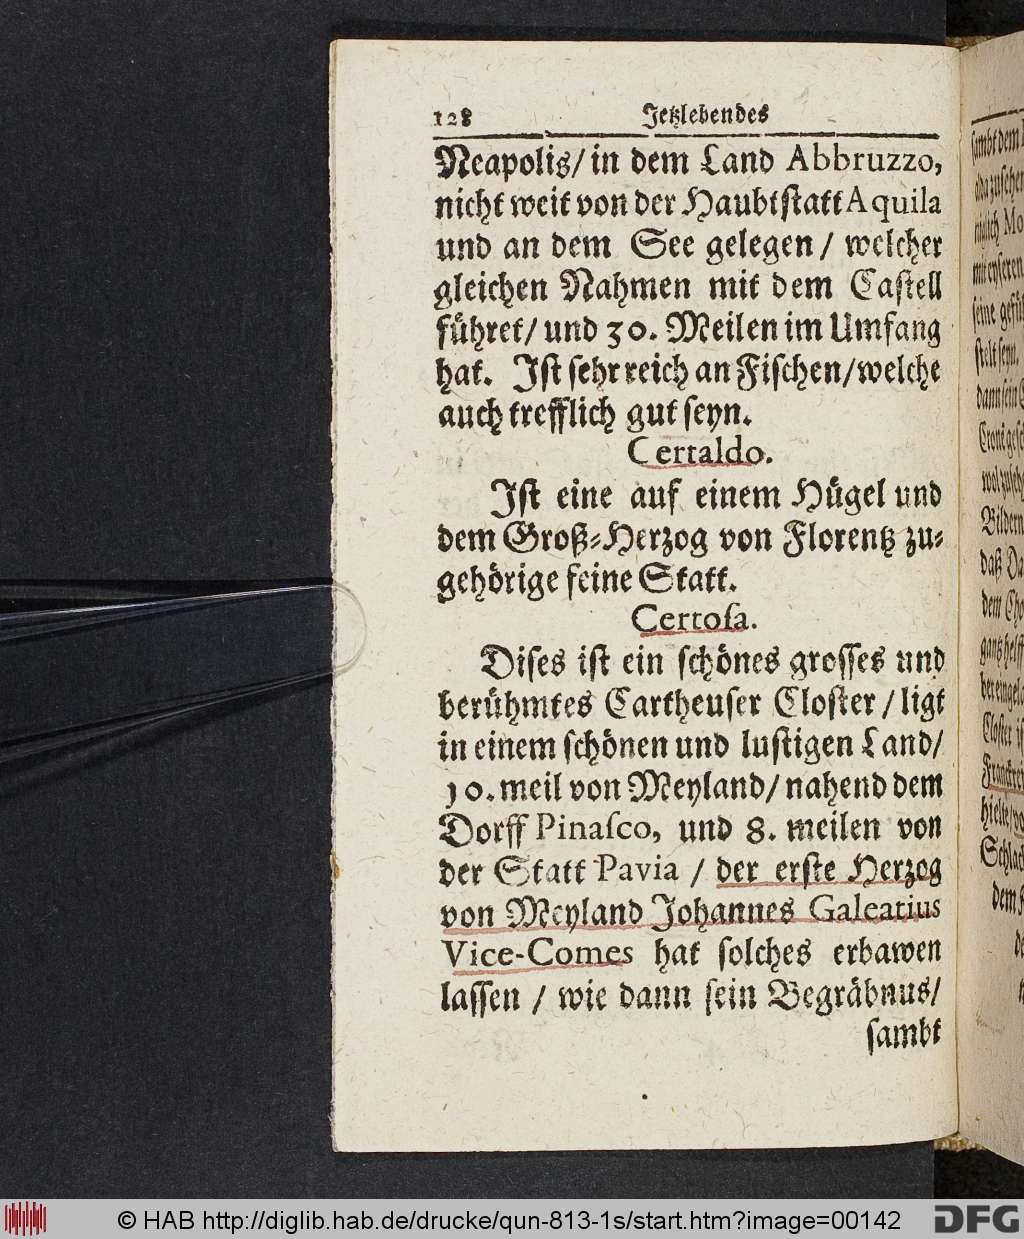 128 Jetzlebendes
Neapolis/ in dem Land Abbruzzo,
nicht weit von der Haubtstatt Aquila
und an dem See gelegen / welcher
gleichen Nahmen mit dem Castell
führet/ und 30. Meilen im Umfang
hat. Ist sehr reich an Fischen/welche
auch trefflich gut seyn.
Certaldo.
Ist eine auf einem Hügel und
dem Groß-Herzog von Florentz zu-
gehörige feine Statt.
Certosa.
Dises ist ein schönes grosses und
berühmtes Cartheuser Closter / ligt
in einem schönen und lustigen Land/
10. meil von Meyland/ nahend dem
Dorff Pinasco, und 8. meilen von
der Statt Pavia / der erste Herzog
von Meyland Johannes Galeatius
Vice-Comes hat solches erbawen
lassen / wie dann sein Begräbnus/
sambt
sambt dem
dann sein
Closter
© HAB http://diglib.hab.de/drucke/qun-813-1s/start.htm?image=00142
DFG